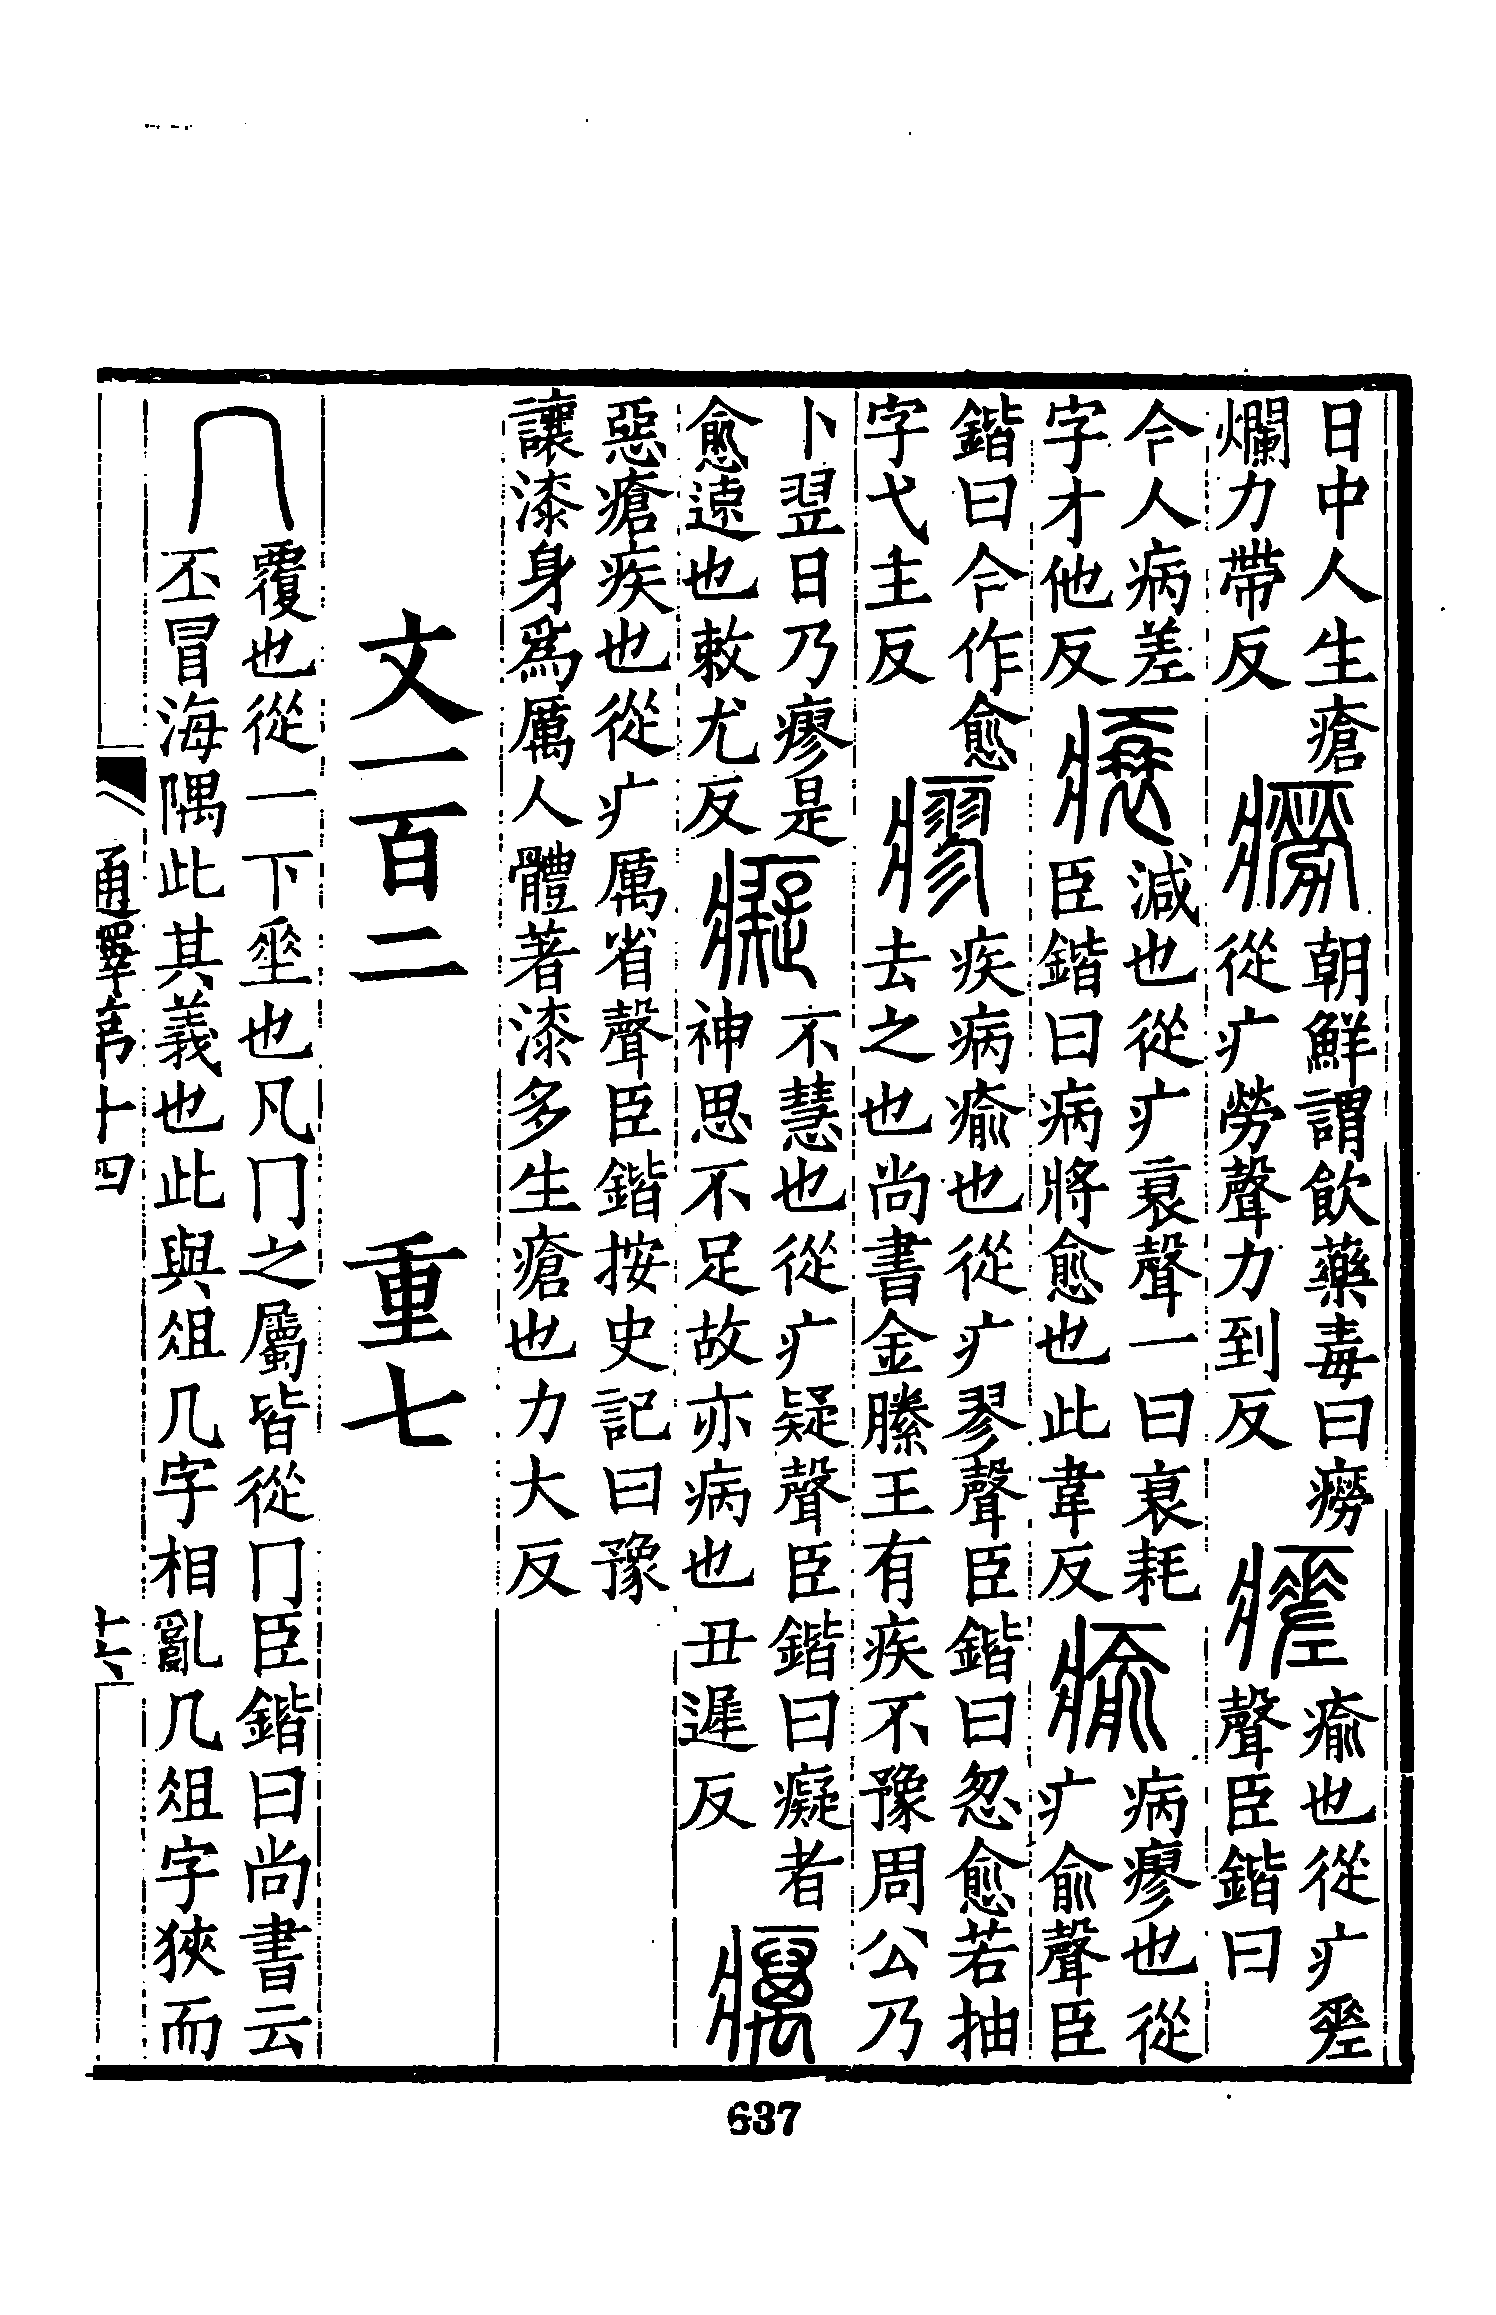 日中人生瘡
爛力帶反
癆
朝鮮謂飲藥毒曰癆
從疒勞聲力到反
瘥
瘉也從疒𡍮
聲臣鍇曰
今人病差
字才他反
𤸬
減也從疒衰聲一曰衰耗
臣鍇曰病將愈也此韋反
瘉
病瘳也從
疒俞聲臣
鍇曰今作愈
字弋主反
瘳
疾病瘉也從疒翏聲臣鍇曰忽愈若抽
去之也尚書金縢王有疾不豫周公乃
卜翌日乃瘳是
愈遠也敕尤反
癡
不慧也從疒疑聲臣鍇曰癡者
神思不足故亦病也丑遲反
癘
惡瘡疾也從疒厲省聲臣鍇按史記曰豫
讓漆身爲厲人體著漆多生瘡也力大反
文一百二 重七
冖
覆也從一下垂也凡冂之屬皆從冂臣鍇曰尚書云
丕冒海隅此其義也此與俎几字相亂几俎字狹而
通釋第十四 十六
637